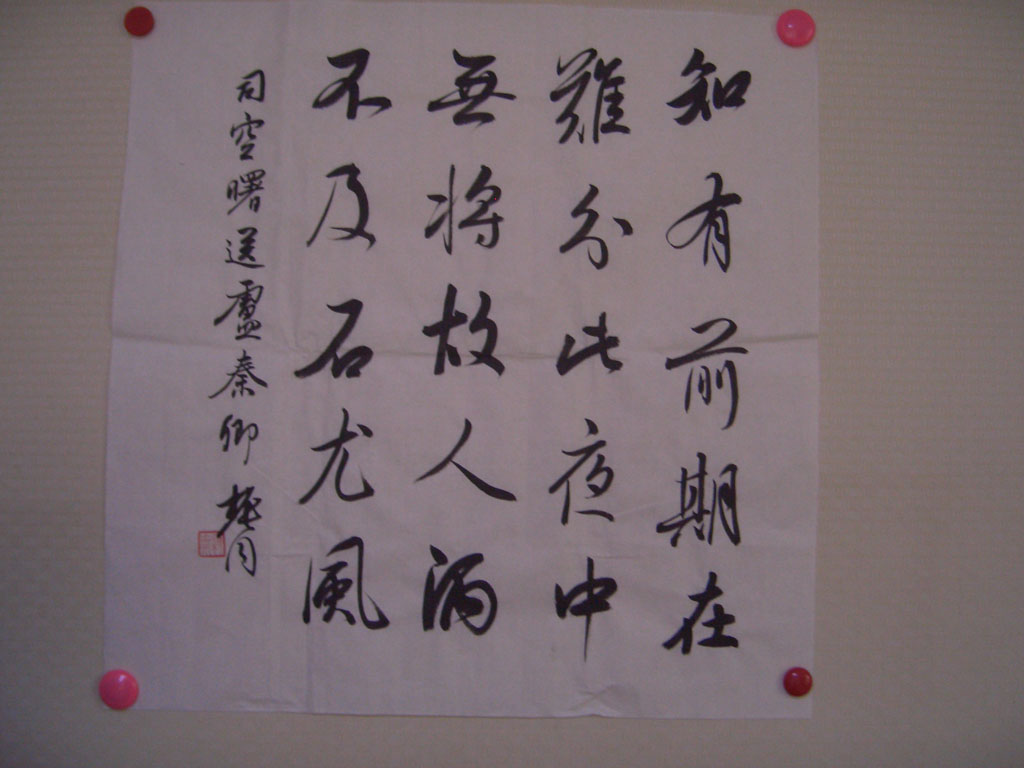 知有前期在
難分此夜中
無将故人酒
不及石尤風
司空曙送盧秦卿